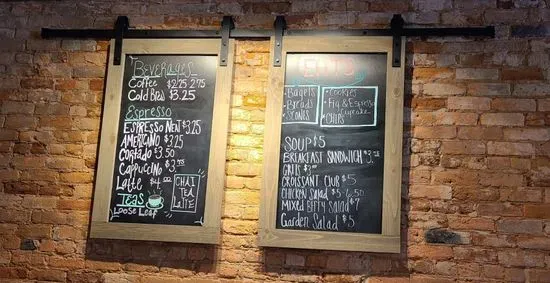 Beverages
Coffee $2.25 2.75
Cold Brew $3.25
Espresso
ESPRESSO $3.25
AMERICANO $3.25
Cortado $3.50
Cappuccino
Latte
CHAI
LATTE
TEAS
Loose Leaf
EATS
• Bagels
• Breads
• Scones
• Cookies
• Fig & Espresso
Cupcake
• Chips
SOUP $5
BREAKFAST SANDWICH
GRITS $3
CROISSANT CLUB $5
CHICKEN Salad
Mixed Salad $7
Garden Salad $5